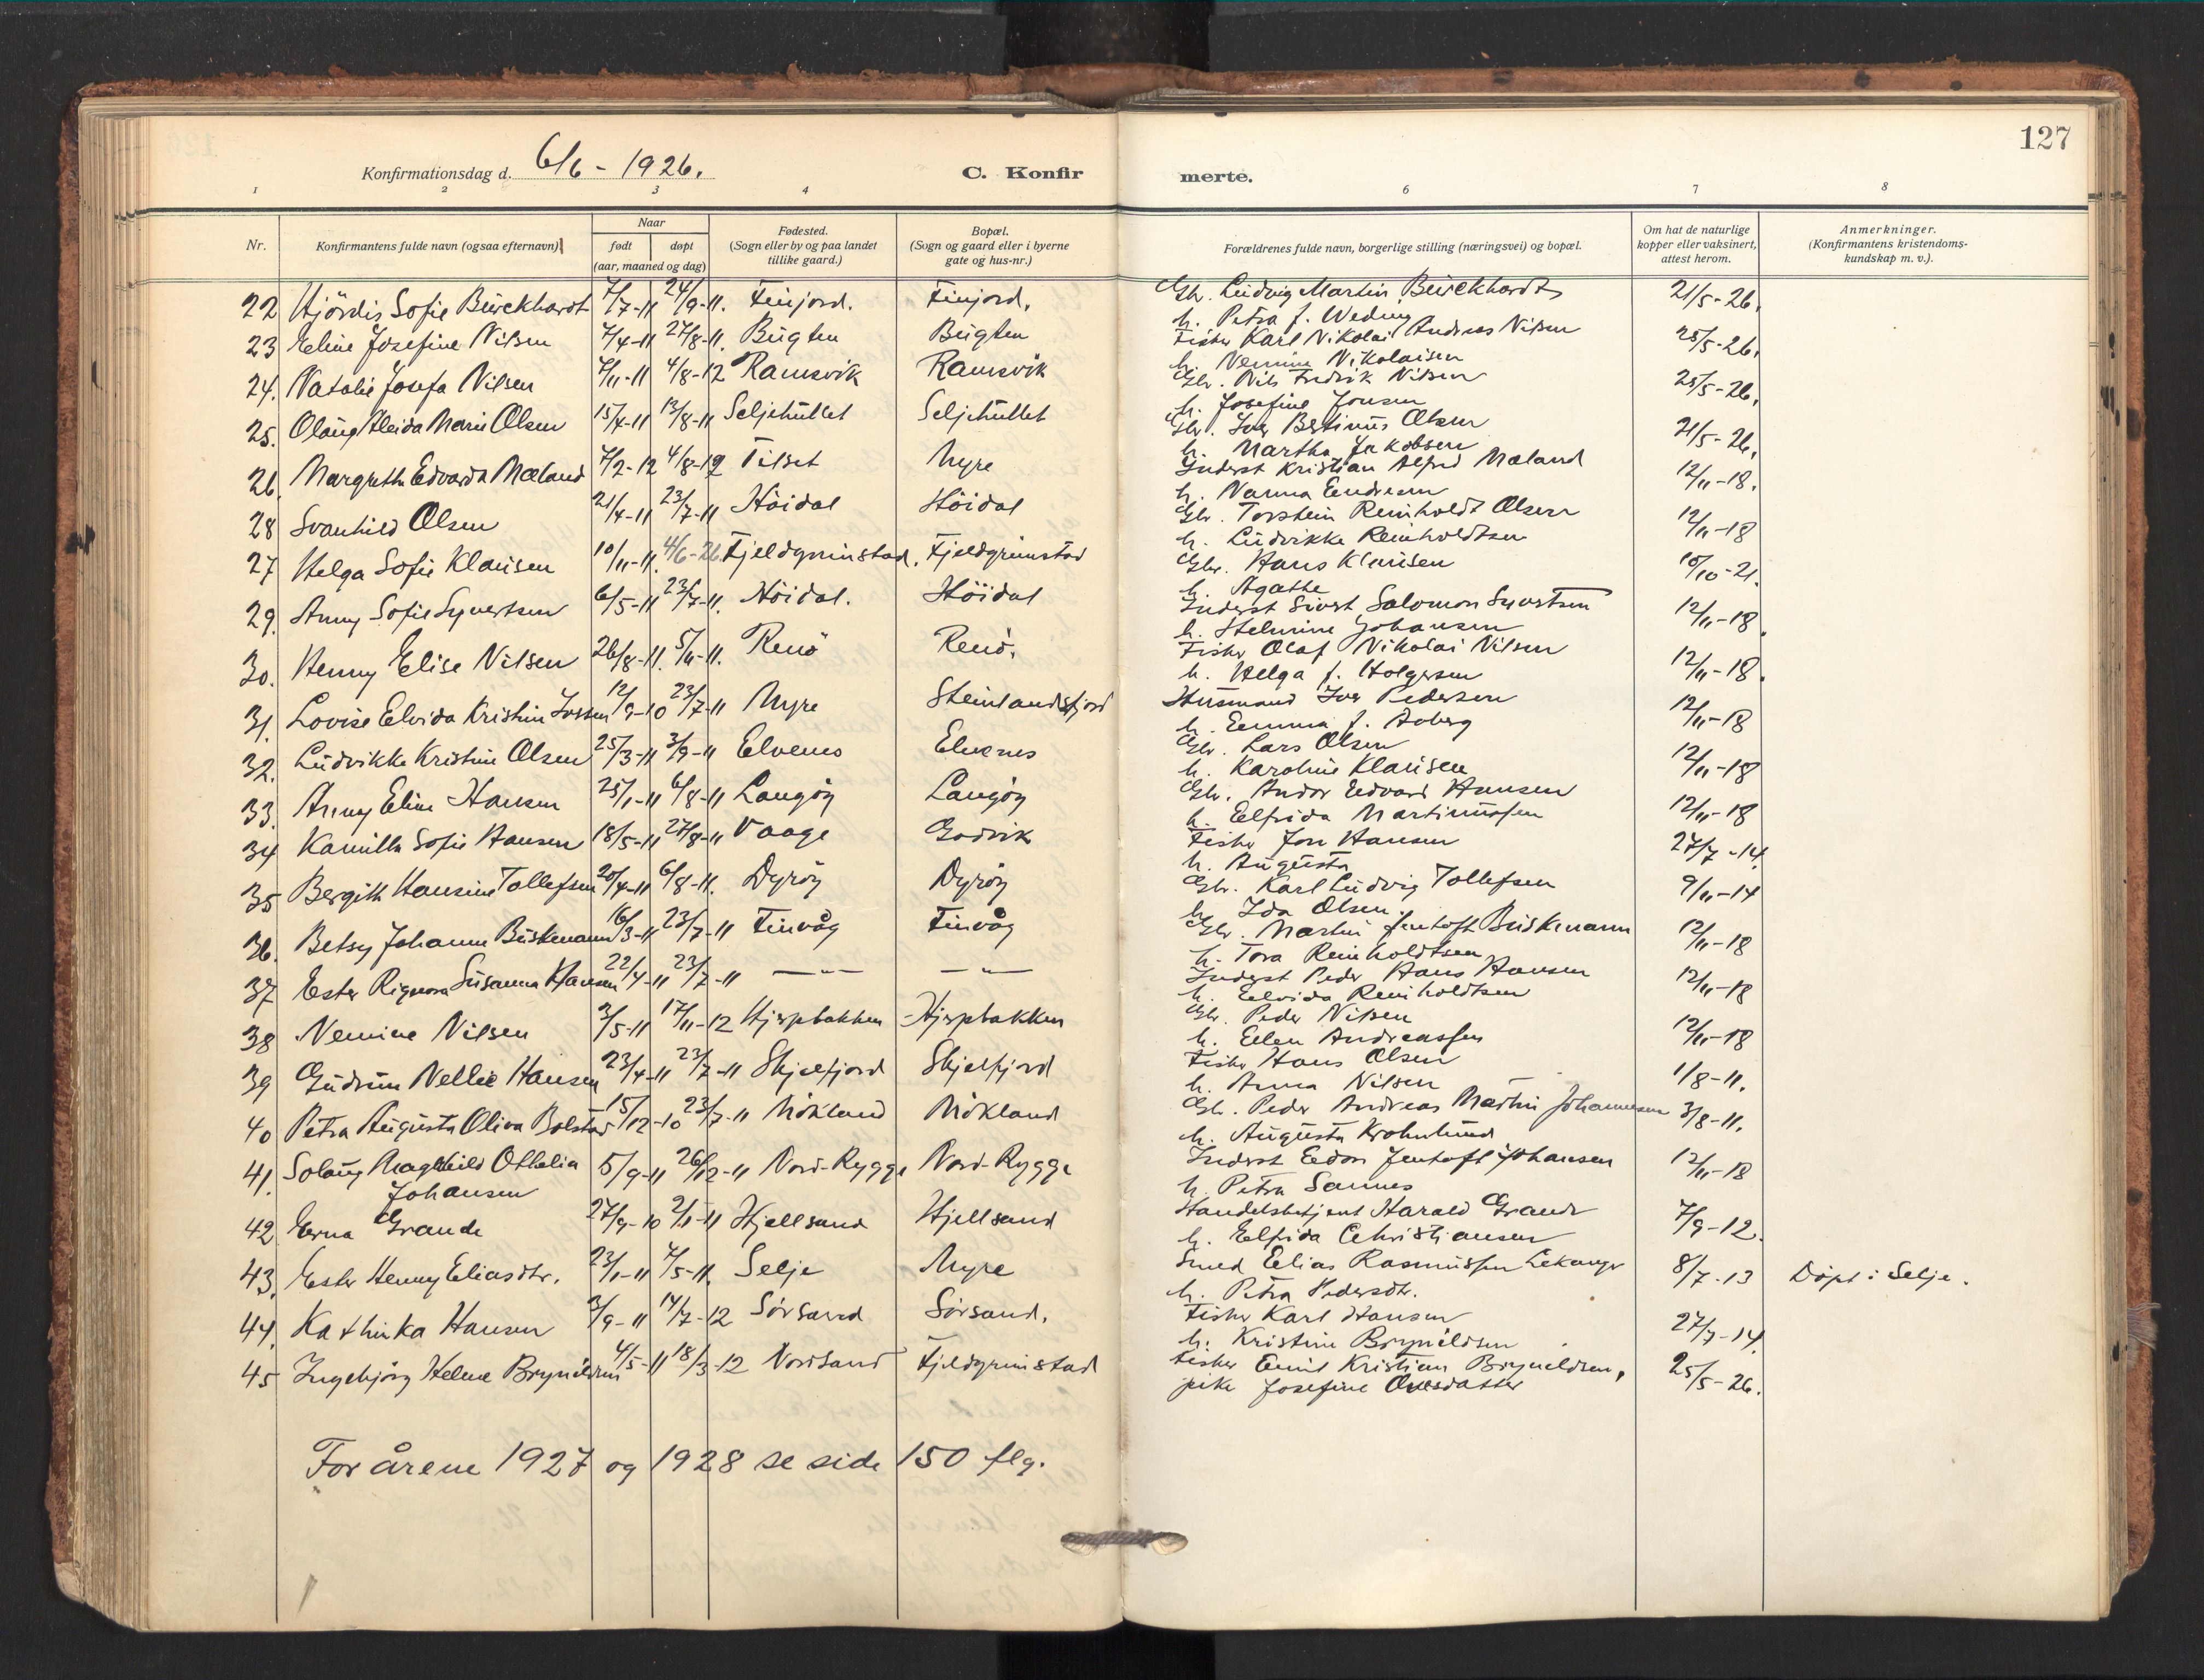 127
Konfirmationsdag d. 6/6 - 1926.
C. Konfir merte.
1 2 3 4 6 7 8
Nr. Konfirmantens fulde navn (ogsaa efternavn) Naar født døpt (aar, maaned og dag) Fødested. (Sogn eller by og paa landet tillike gaard.) Bopæl. (Sogn og gaard eller i byerne gate og hus-nr.) Forældrenes fulde navn, borgerlige stilling (næringsvei) og bopæl. Om hat de naturlige kopper eller vaksinert, attest herom. Anmerkninger. (Konfirmantens kristendoms-kundskap m. v.).
22 Hjördis Sofie Burckhardt 7/7-11 24/9-11. Finjord. Finjord. Gbr. Ludvig Martin Burckhardt 21/5-26.
h. Petra f. Weding
23 Eline Josefine Nilsen 7/4-11 27/8-11. Bugten Bugten Fisker Karl Nikolai Andreas Nilsen 25/5-26.
h. Nemine Nikolaisen
24. Natalie Josefa Nilsen 7/11-11 4/8-12 Ramsvik Ramsvik Gbr. Nils Fredrik Nilsen 25/5-26.
h. Josefine Jonsen
25. Olaug Aleida Marie Olsen 15/4-11 13/8-11 Seljehullet Seljehullet Gbr. Iver Bertinus Olsen 21/5-26.
h. Martha Jakobsen
26. Margrethe Edvarda Mæland 7/2-12 4/8-12 Tilset Myre Inderst Kristian Alfred Mæland 12/11-18.
h. Nanna Endresen
28 Svanhild Olsen 21/4-11 23/7-11 Höidal Höidal Gbr. Torstein Reinholdt Olsen 12/11-18
h. Ludvikke Reinholdtsen
27 Helga Sofie Klausen 10/11-11. 4/6-26. Fjeldgrimstad. Fjeldgrimstad Gbr. Hans Klausen 10/10-21.
h. Agathe
29. Anny Sofie Syvertsen 6/5-11 23/7-11. Höidal. Höidal Inderst Sivert Salomon Syvertsen 12/11-18.
h. Helmine Johansen
30. Henny Elise Nilsen 26/8-11. 5/11-11. Renö Renö. Fisker Olaf Nikolai Nilsen 12/11-18.
h. Helga f. Holgersen
31. Lovise Elvida Kristin Iversen 12/9-10 23/7-11 Myre Steinlandsfjord Husmand Iver Pedersen 12/11-18
h. Emma f. Aaberg
32. Ludvikke Kristine Olsen 25/3-11 3/9-11 Elvenes Elvenes Gbr. Lars Olsen 12/11-18
h. Karoline Klausen
33. Anny Eline Hansen 25/1-11 6/8-11 Langöy Langöy Gbr. Andor Edvard Hansen 12/11-18
h. Elfrida Martinussen
34 Kamilla Sofie Hansen 18/5-11 27/8-11 Vaage Godvik Fisker Jon Hansen 27/7-14.
h. Augusta
35 Bergith Hansine Tollefsen 20/4-11 6/8-11. Dyröy Dyröy Gbr. Karl Ludvig Tollefsen 9/11-14
h. Ida Olsen.
36. Betsy Johanne Buskmann 16/3-11 23/7-11 Finvåg Finvåg Gbr. Martin Jentoft Buskmann 12/11-18
h. Tora Reinholdtsen
37 Ester Rignora Susanna Hansen 22/4-11 23/7-11 —"— —"— Inderst Peder Hans Hansen 12/11-18
h. Elvida Reinholdtsen
38 Nemine Nilsen 3/5-11 17/11-12 Hjerpbakken Hjerpbakken Gbr. Peder Nilsen 12/11-18
h. Ellen Andreassen
39 Gudrun Nellie Hansen 23/4-11 23/7-11 Skjelfjord Skjelfjord Fisker Hans Olsen 1/8-11.
h. Anna Nilsen
40 Petra Augusta Oliva Bolstad 15/12-10 23/7-11 Mökland Mökland Gbr. Peder Andreas Martin Johannesen 3/8-11.
h. Augusta Krohnlund
41. Solaug Magnhild Othelia 5/9-11 26/12-11 Nord-Rygge Nord-Rygge Inderst Edon Jentoft Johansen 12/11-18
Johansen h. Petra Sannes
42 Erna Grande 27/9-10 2/1-11 Hjellsand Hjellsand Handelsbetjent Harald Grande 7/9-12.
h. Elfrida Christiansen
43. Ester Henny Eliasdtr. 23/1-11 7/5-11. Selje Myre Smed Elias Rasmussen Lekanger 8/7-13 Döpt i Selje.
h. Petra Pedersdtr.
44. Kathinka Hansen 3/9-11 14/7-12 Sörsand Sörsand. Fisker Karl Hansen 27/7-14.
h. Kristine Brynildsen
45 Ingebjörg Helene Brynildsen 4/5-11 18/3-12 Nordsand Fjeldgrimstad Fisker Emil Kristian Bryneldsen, 25/5-26.
pike Josefine Ovesdatter
For årene 1927 og 1928 se side 150 flg.